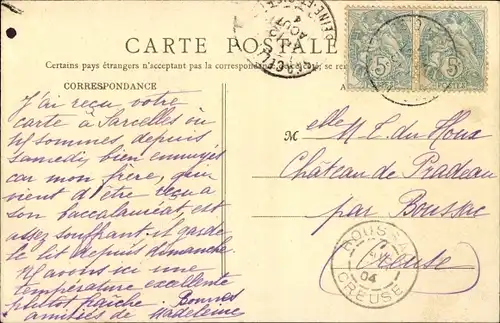 CARTE POSTALE
Certains pays étrangers n'acceptant pas la correspondance
CORRESPONDANCE
J'ai reçu votre
carte à Sarcelles où
ns sommes depuis
samedi, bien ennuyés
car mon frère, qui
vient d'être reçu à
son baccalauréat, est
assez souffrant et garde
le lit depuis dimanche.
Ns avons ici une
température excellente
plutôt fraîche. Bonnes
amitiés de Madeleine
Melle M. L. du Houx
Château de Pradeau
par Boussac
Creuse
5
5
BOUSSAC
04
CREUSE
SEINE-ET-OISE